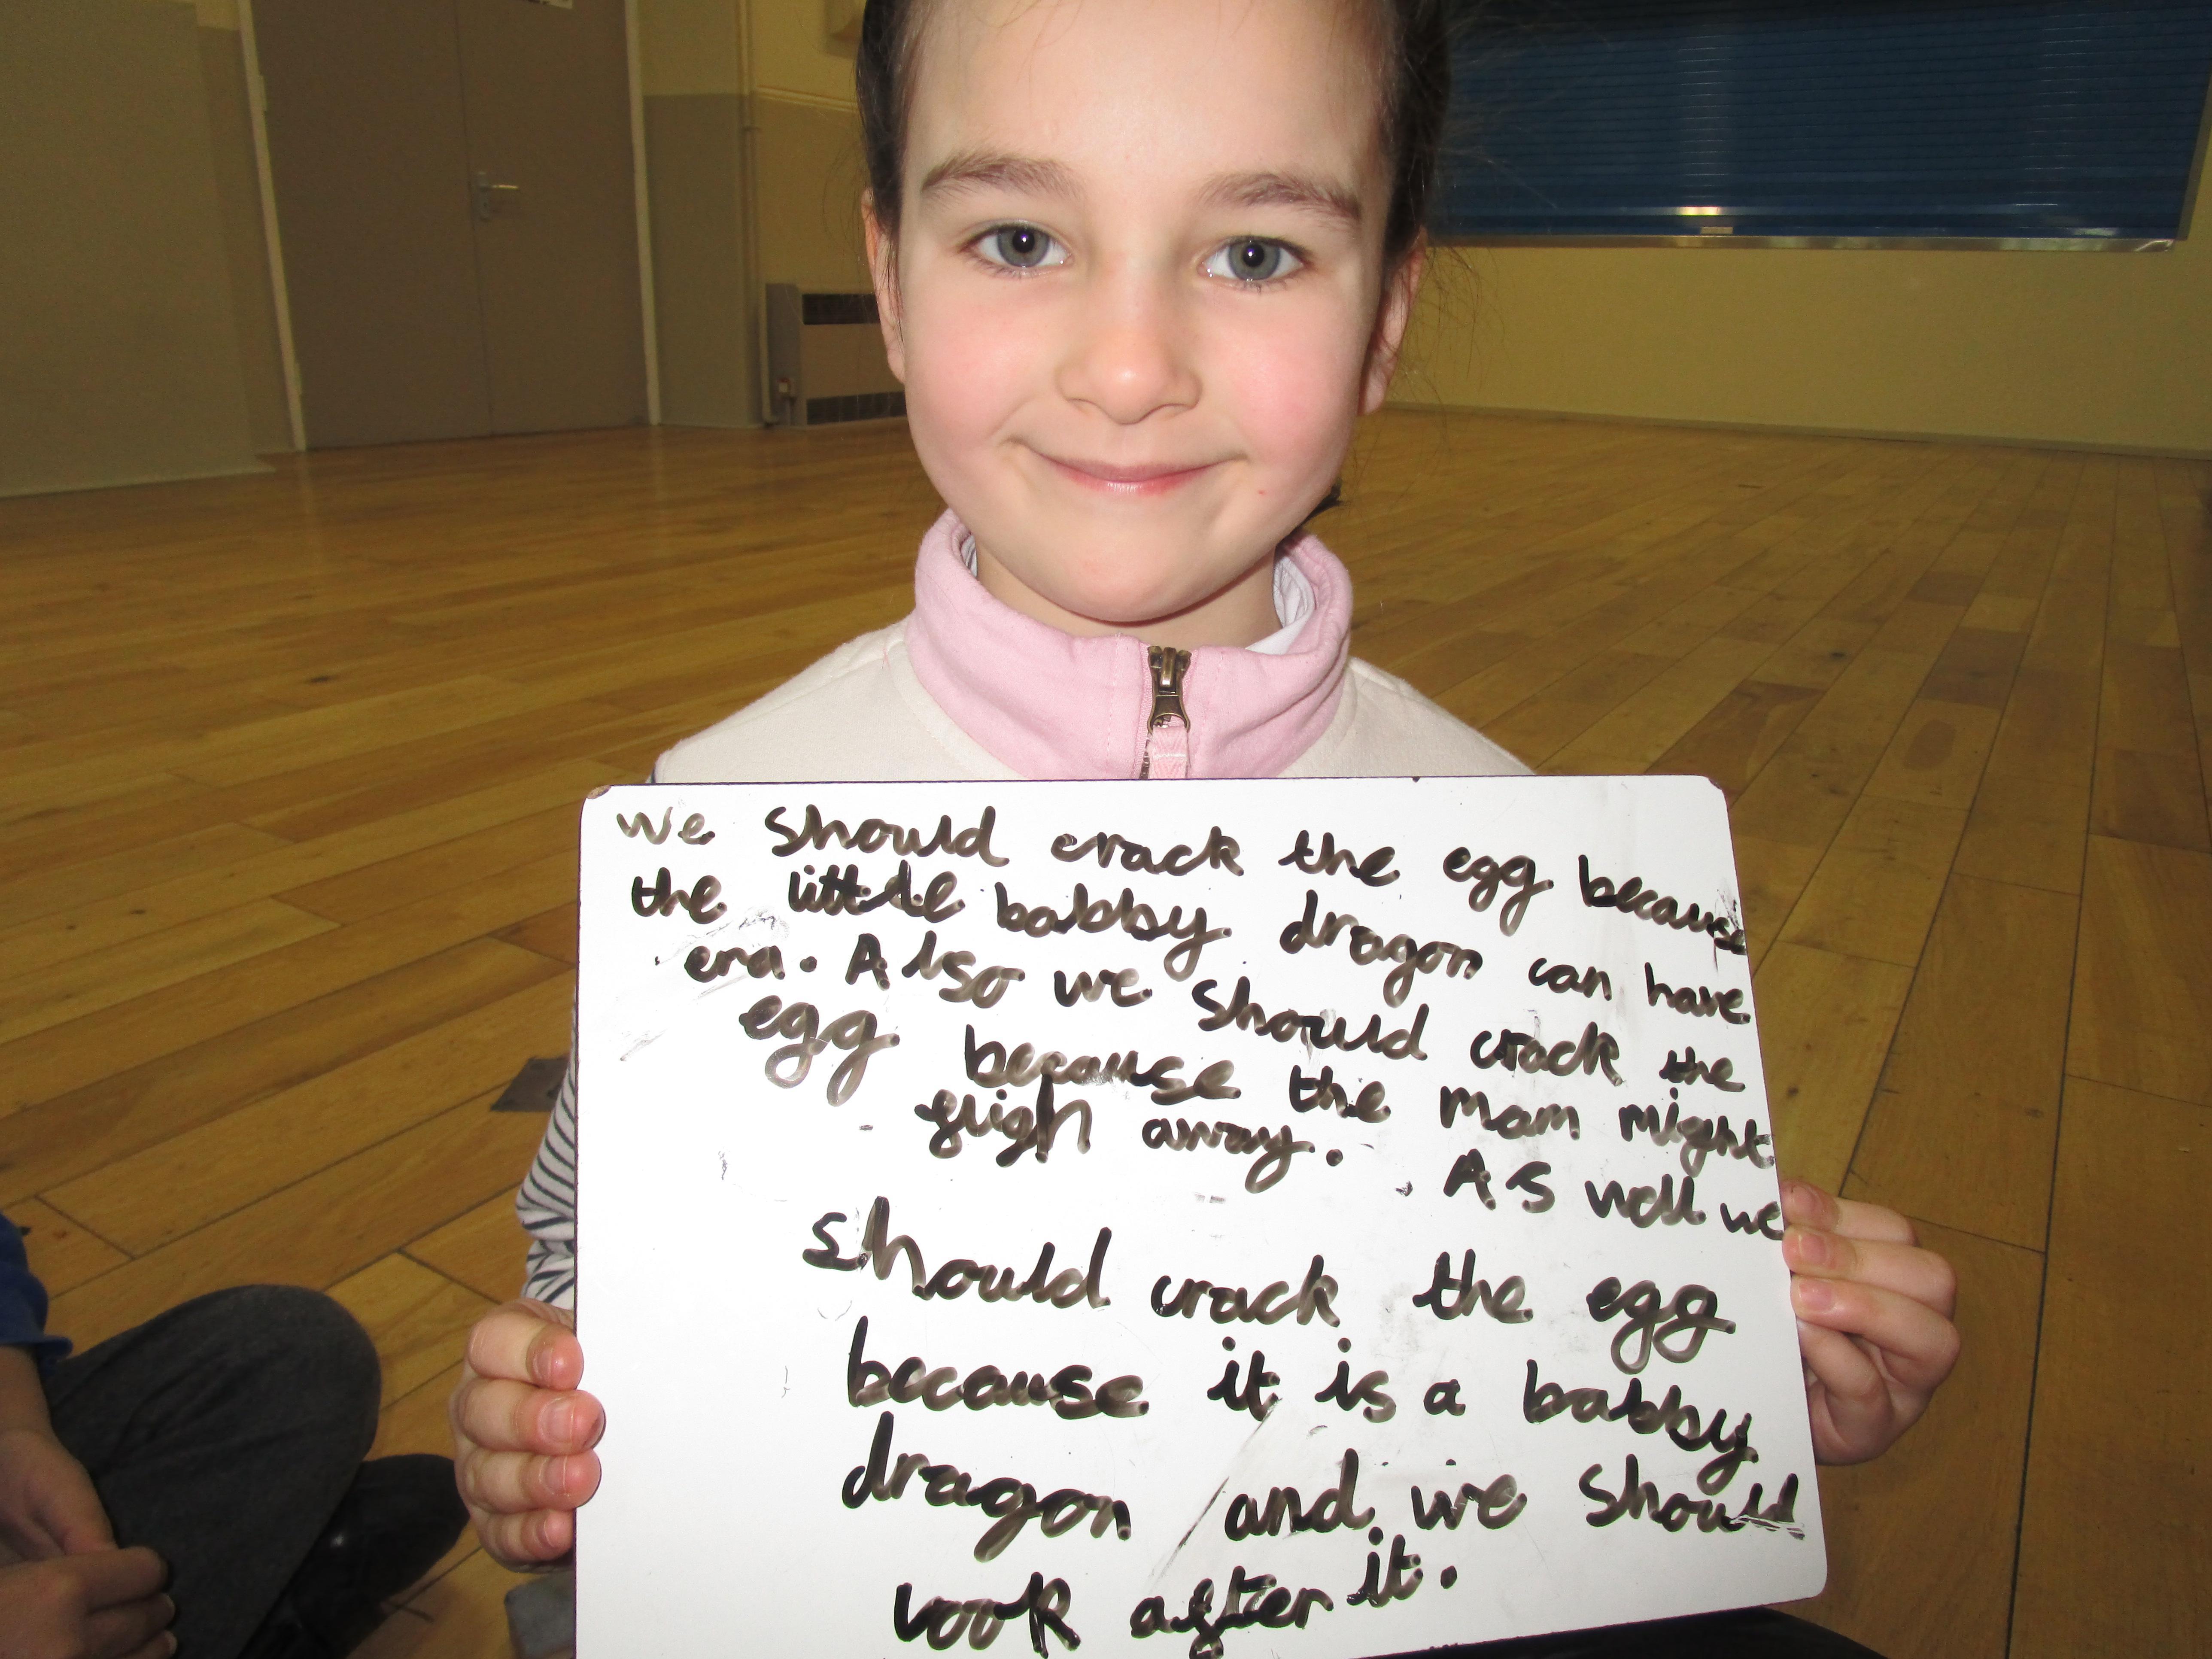 we should crack the egg because
the little babby dragon can have
era. Also we should crack the
egg because the mam might
fligh away. As well we
should crack the egg
because it is a babby
dragon and we should
look after it.